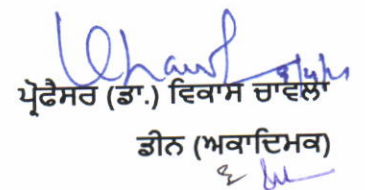 ਪ੍ਰੋਫੈਸਰ (ਡਾ.) ਵਿਕਾਸ ਚਾਵਲਾ
ਡੀਨ (ਅਕਾਦਿਮਕ)